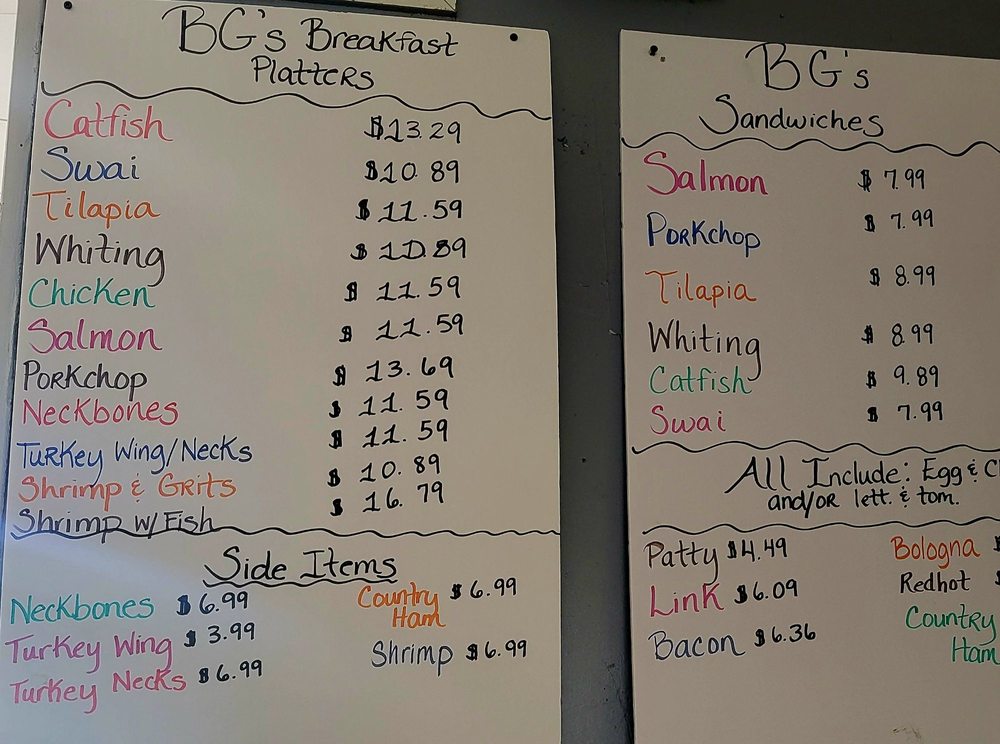 BG's Breakfast
Platters
Catfish $13.29
Swai $10.89
Tilapia $11.59
Whiting $10.89
Chicken $11.59
Salmon $11.59
Porkchop $13.69
Neckbones $11.59
Turkey Wing/Necks $11.59
Shrimp & Grits $10.89
Shrimp w/ Fish $16.79
Side Items
Neckbones $6.99
Turkey Wing $3.99
Turkey Necks $6.99
Country $6.99
Ham
Shrimp $6.99
BG's
Sandwiches
Salmon $7.99
Porkchop $7.99
Tilapia $8.99
Whiting $8.99
Catfish $9.89
Swai $7.99
All Include: Egg &
and/or lett. & tom.
Patty $4.49
Link $6.09
Bacon $6.36
Bologna $
Redhot $
Country
Ham